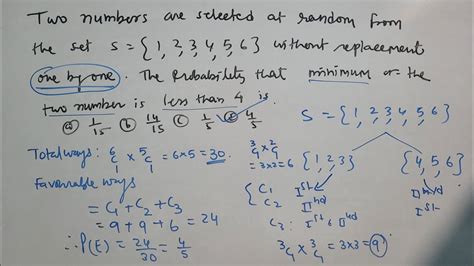 Two numbers are selected at random from
the set S = {1, 2, 3, 4, 5, 6} without replacement
one by one. The Probability that minimum of the
two number is less than 4 is
(a) 1/15 (b) 14/15 (c) 1/5 (d) 4/5
S = {1, 2, 3, 4, 5, 6}
Total ways: ⁶C₁ × ⁵C₁ = 6×5 = 30.
³C₁ × ²C₁
= 3×2 = 6
{1, 2, 3}
{4, 5, 6}
Favourable ways
= C₁ + C₂ + C₃
= 9 + 9 + 6 = 24
∴ P(E) = 24/30 = 4/5
C₁ Iˢᵗ IIⁿᵈ
C₂ IIⁿᵈ Iˢᵗ
C₃: Iˢᵗ & IIⁿᵈ
³C₁ × ³C₁ = 3×3 = 9